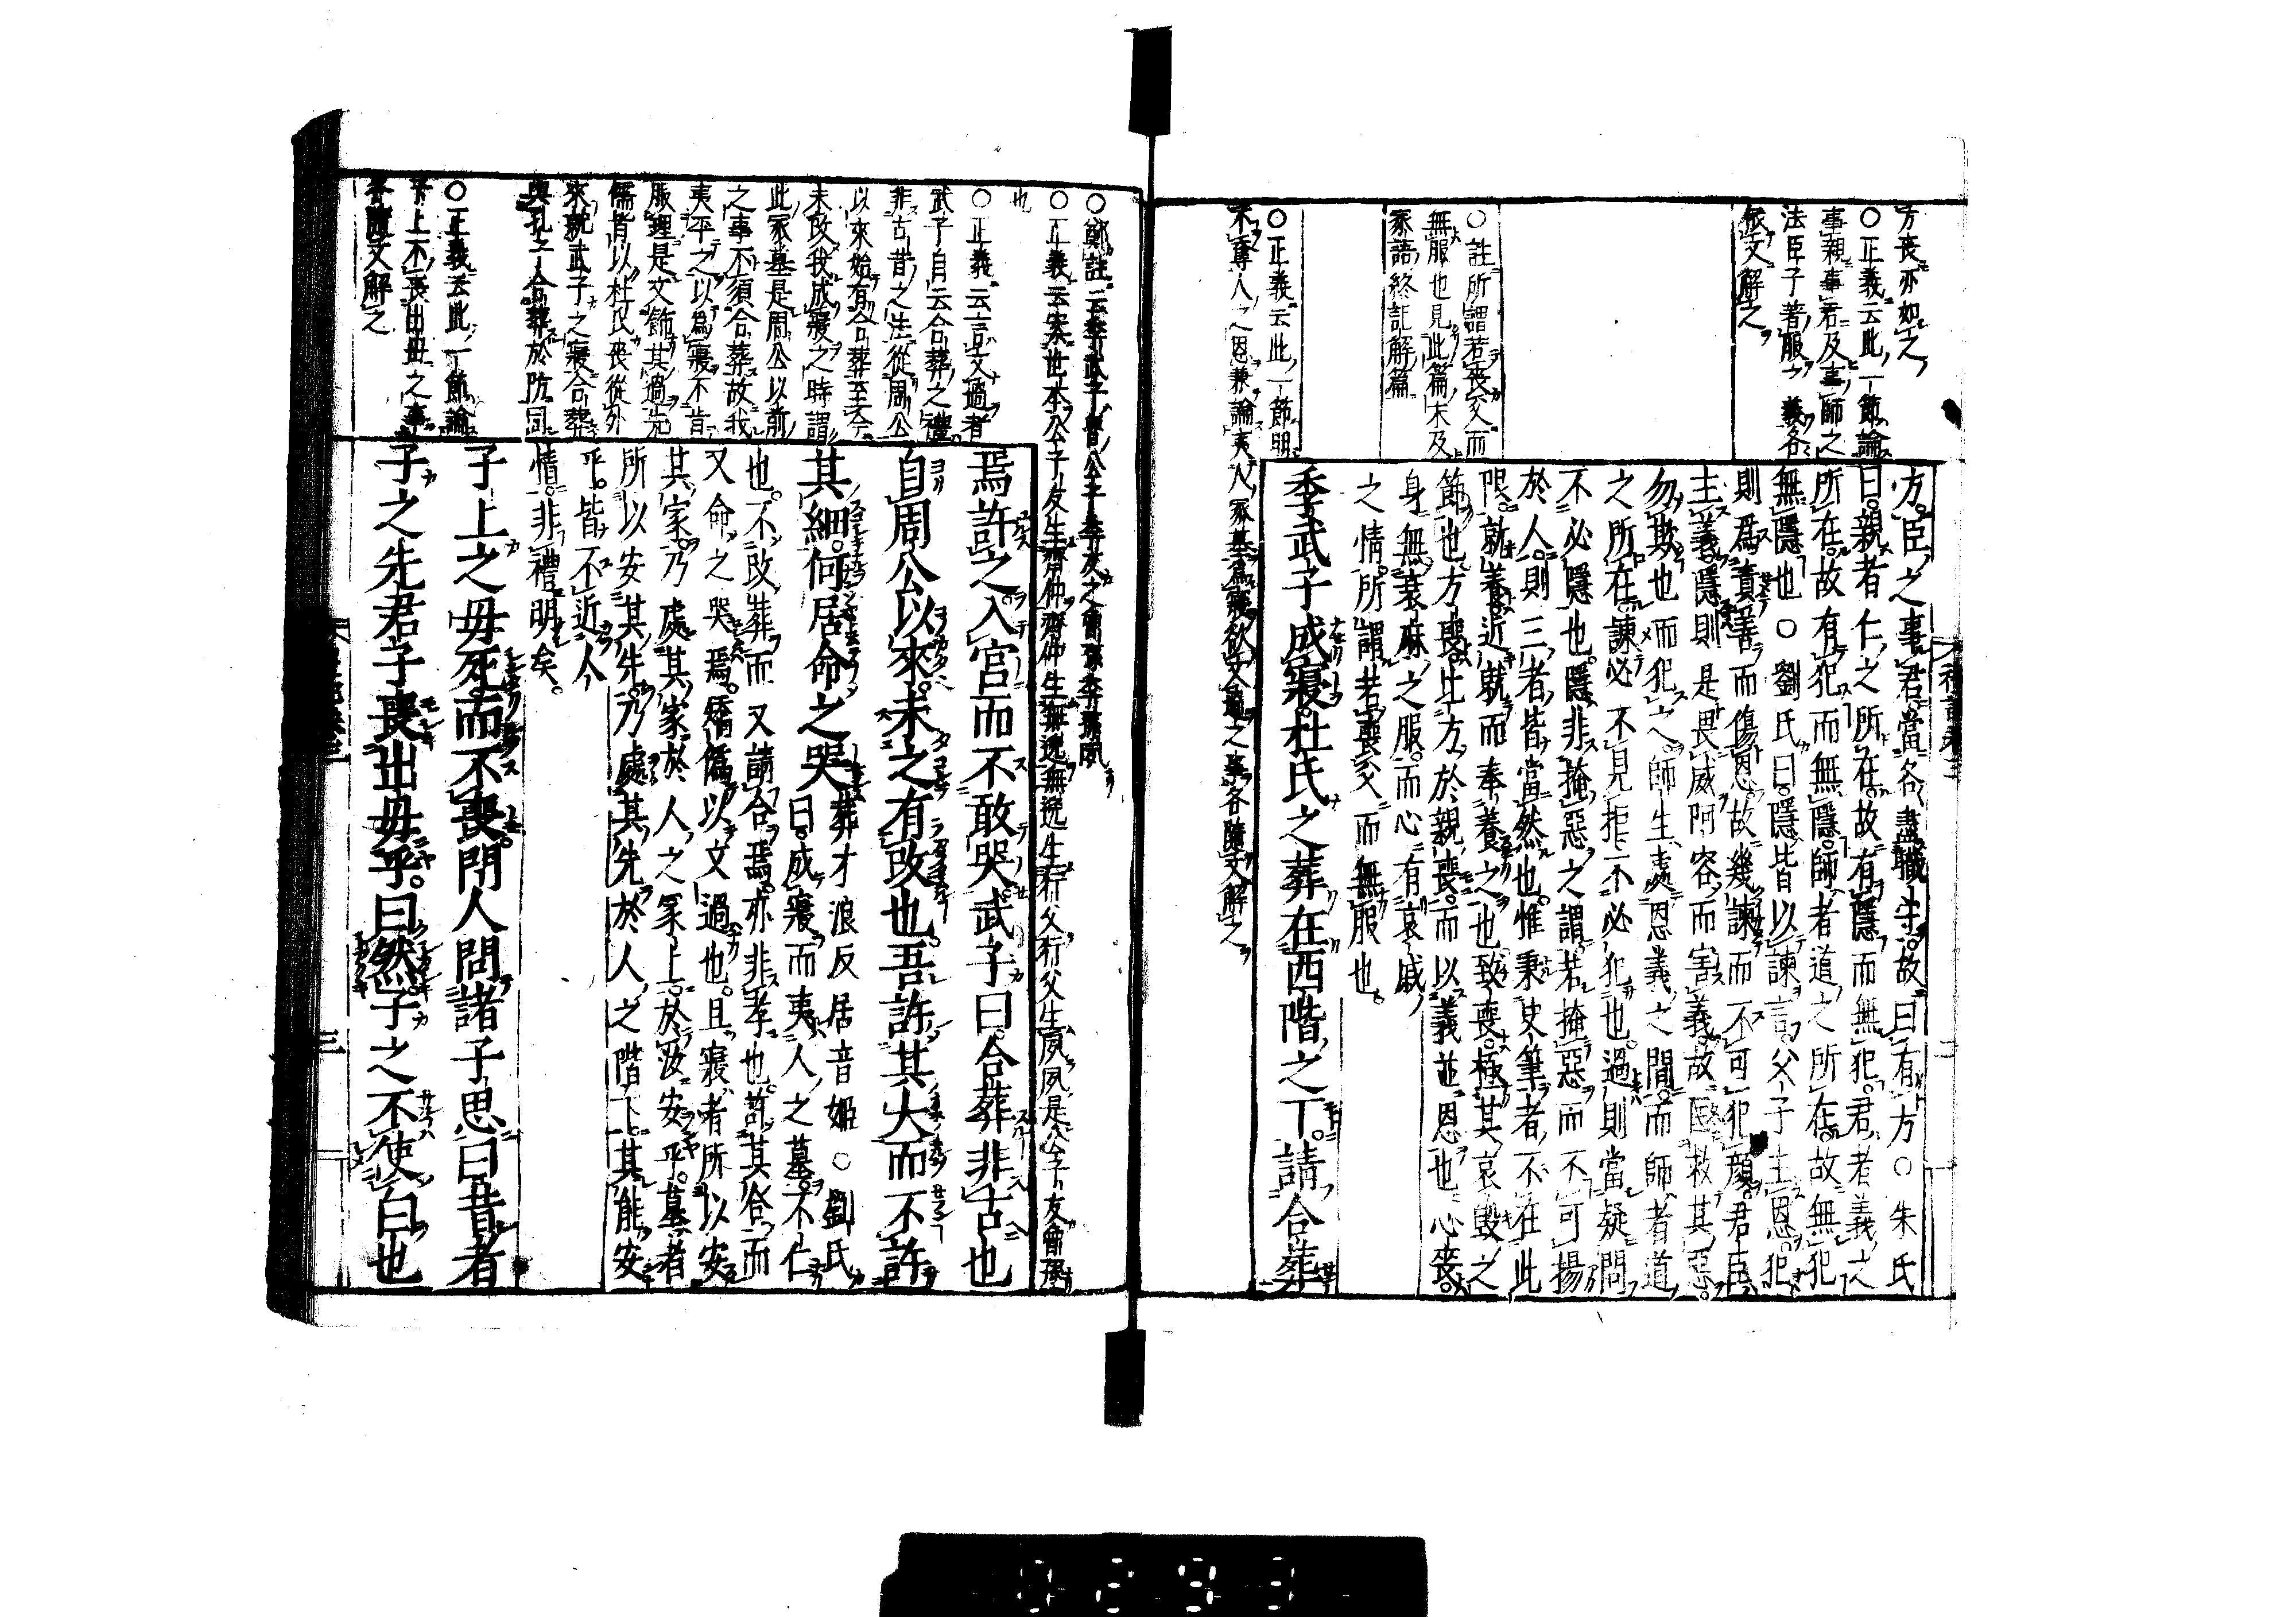 方喪亦如之
○正義云此一節論
事親事君及事師之
法臣子著服之義各
依文解之
○註所謂若喪父而
無服也見此篇末及
家語終記解篇
○正義云此一節明
不奪人之恩兼論夷人冢墓爲寢欲文過之事各隨文解之
方臣之事君當各盡職守故曰有方○朱氏
曰親者仁之所在故有隱而無犯君者義之
所在故有犯而無隱師者道之所在故無犯
無隱也○劉氏曰隱皆以諫言父子主恩犯
則爲責善而傷恩故幾諫而不可犯顏君臣
主義隱則是畏威阿容而害義故匡救其惡
勿欺也而犯之師生處恩義之間而師者道
之所在諫必不見拒不必犯也過則當疑問
不必隱也隱非掩惡之謂若掩惡而不可揚
於人則三者皆當然也惟秉史筆者不在此
限就養近就而奉養之也致喪極其哀毀之
節也方喪比方於親喪而以義並恩也心喪
身無衰麻之服而心有哀戚
之情所謂若喪父而無服也
季武子成寢杜氏之葬在西階之下請合葬
○鄭註云季武子魯公子季友之曾孫季孫夙
○正義云案世本公子友生齊仲齊仲生無逸無逸生行父行父生夙夙是公子友曾孫
也
○正義云言文過者
武子自云合葬之禮
非古昔之法從周公
以來始有合葬至今
未改我成寢之時謂
此冢墓是周公以前
之事不須合葬故我
夷平之以爲寢不肯
服理是文飾其過先
儒皆以杜氏喪從外
來就武子之寢合葬
與孔子合葬於防同
○正義云此一節論
子上不喪出母之事
各隨文解之
焉許之入宮而不敢哭武子曰合葬非古也
自周公以來未之有改也吾許其大而不許
其細何居命之哭葬才浪反居音姬○劉氏
曰成寢而夷人之墓不仁
也不改葬而又請合焉亦非孝也許其合而
又命之哭焉矯僞以文過也且寢者所以安
其家乃處其家於人之冢上於汝安乎墓者
所以安其先乃處其先於人之階下其能安
乎皆不近人
情非禮明矣
子上之母死而不喪門人問諸子思曰昔者
子之先君子喪出母乎曰然子之不使白也
三